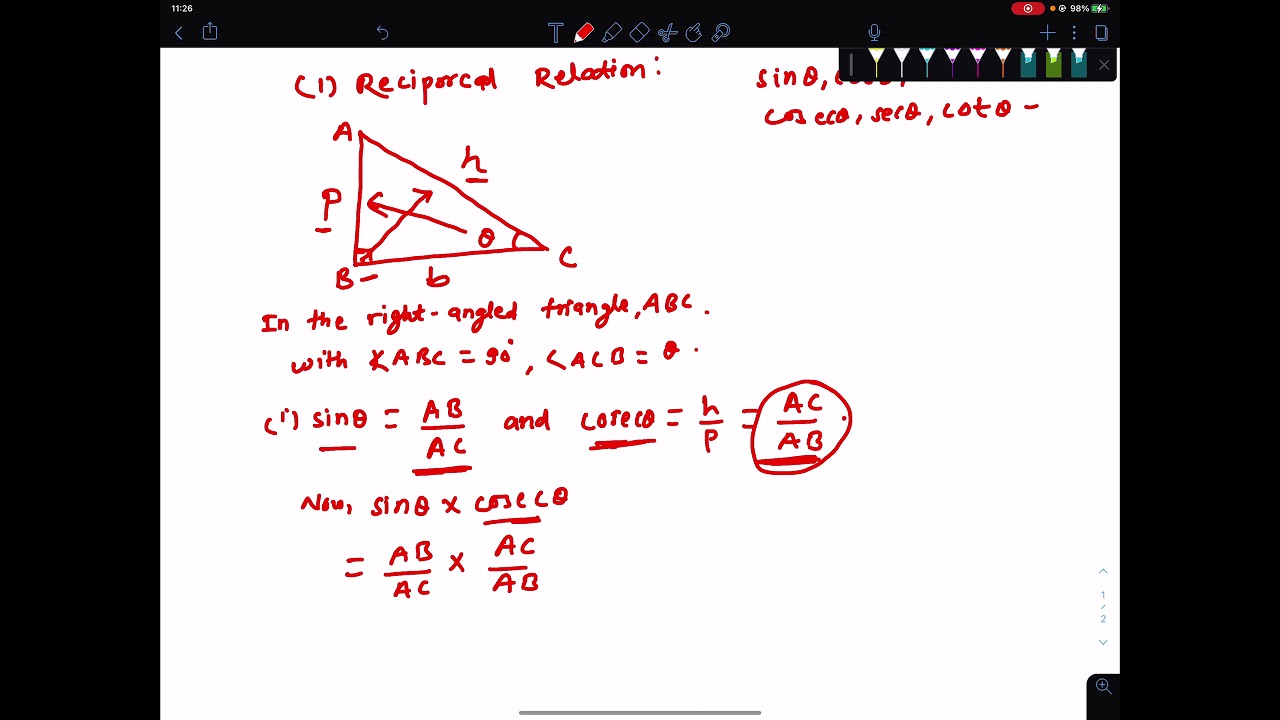 11:26
98%
(1) Reciprocal Relation:
sinθ,
cosecθ, secθ, cotθ -
A
h
P
θ
B
b
C
In the right-angled triangle, ABC.
with ∠ABC = 90°, ∠ACB = θ.
(i) sinθ = AB/AC and cosecθ = h/p = AC/AB
Now, sinθ × cosecθ
= AB/AC × AC/AB
1
/
2